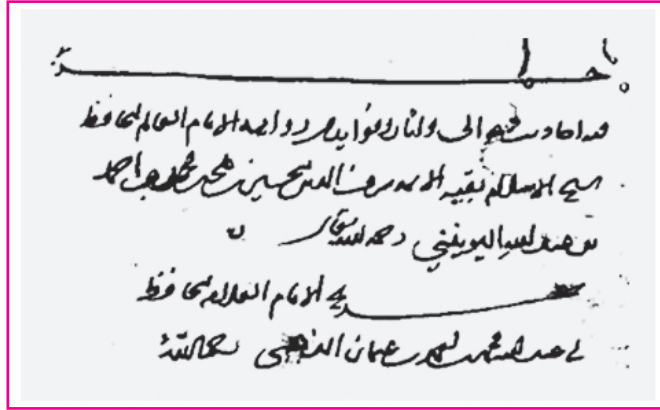 فيه احاديث وفوايد من رواية الامام العالم الحافظ
شيخ الاسلام بقية الايمة شرف الدين الحسين احمد
بن عبد الله اليونيني رحمه الله تعالى
تخريج الامام العلامة الحافظ
ابي عبد الله محمد بن احمد بن عثمان الذهبي رحمه الله